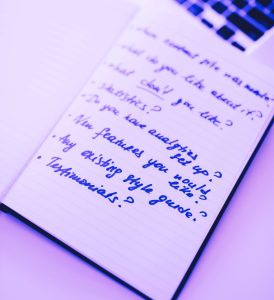 • What do you like about it?
• What don't you like?
• Statistics?
• Do you have analytics
set up?
• New features you would
like?
• Any existing style guide?
• Testimonials?